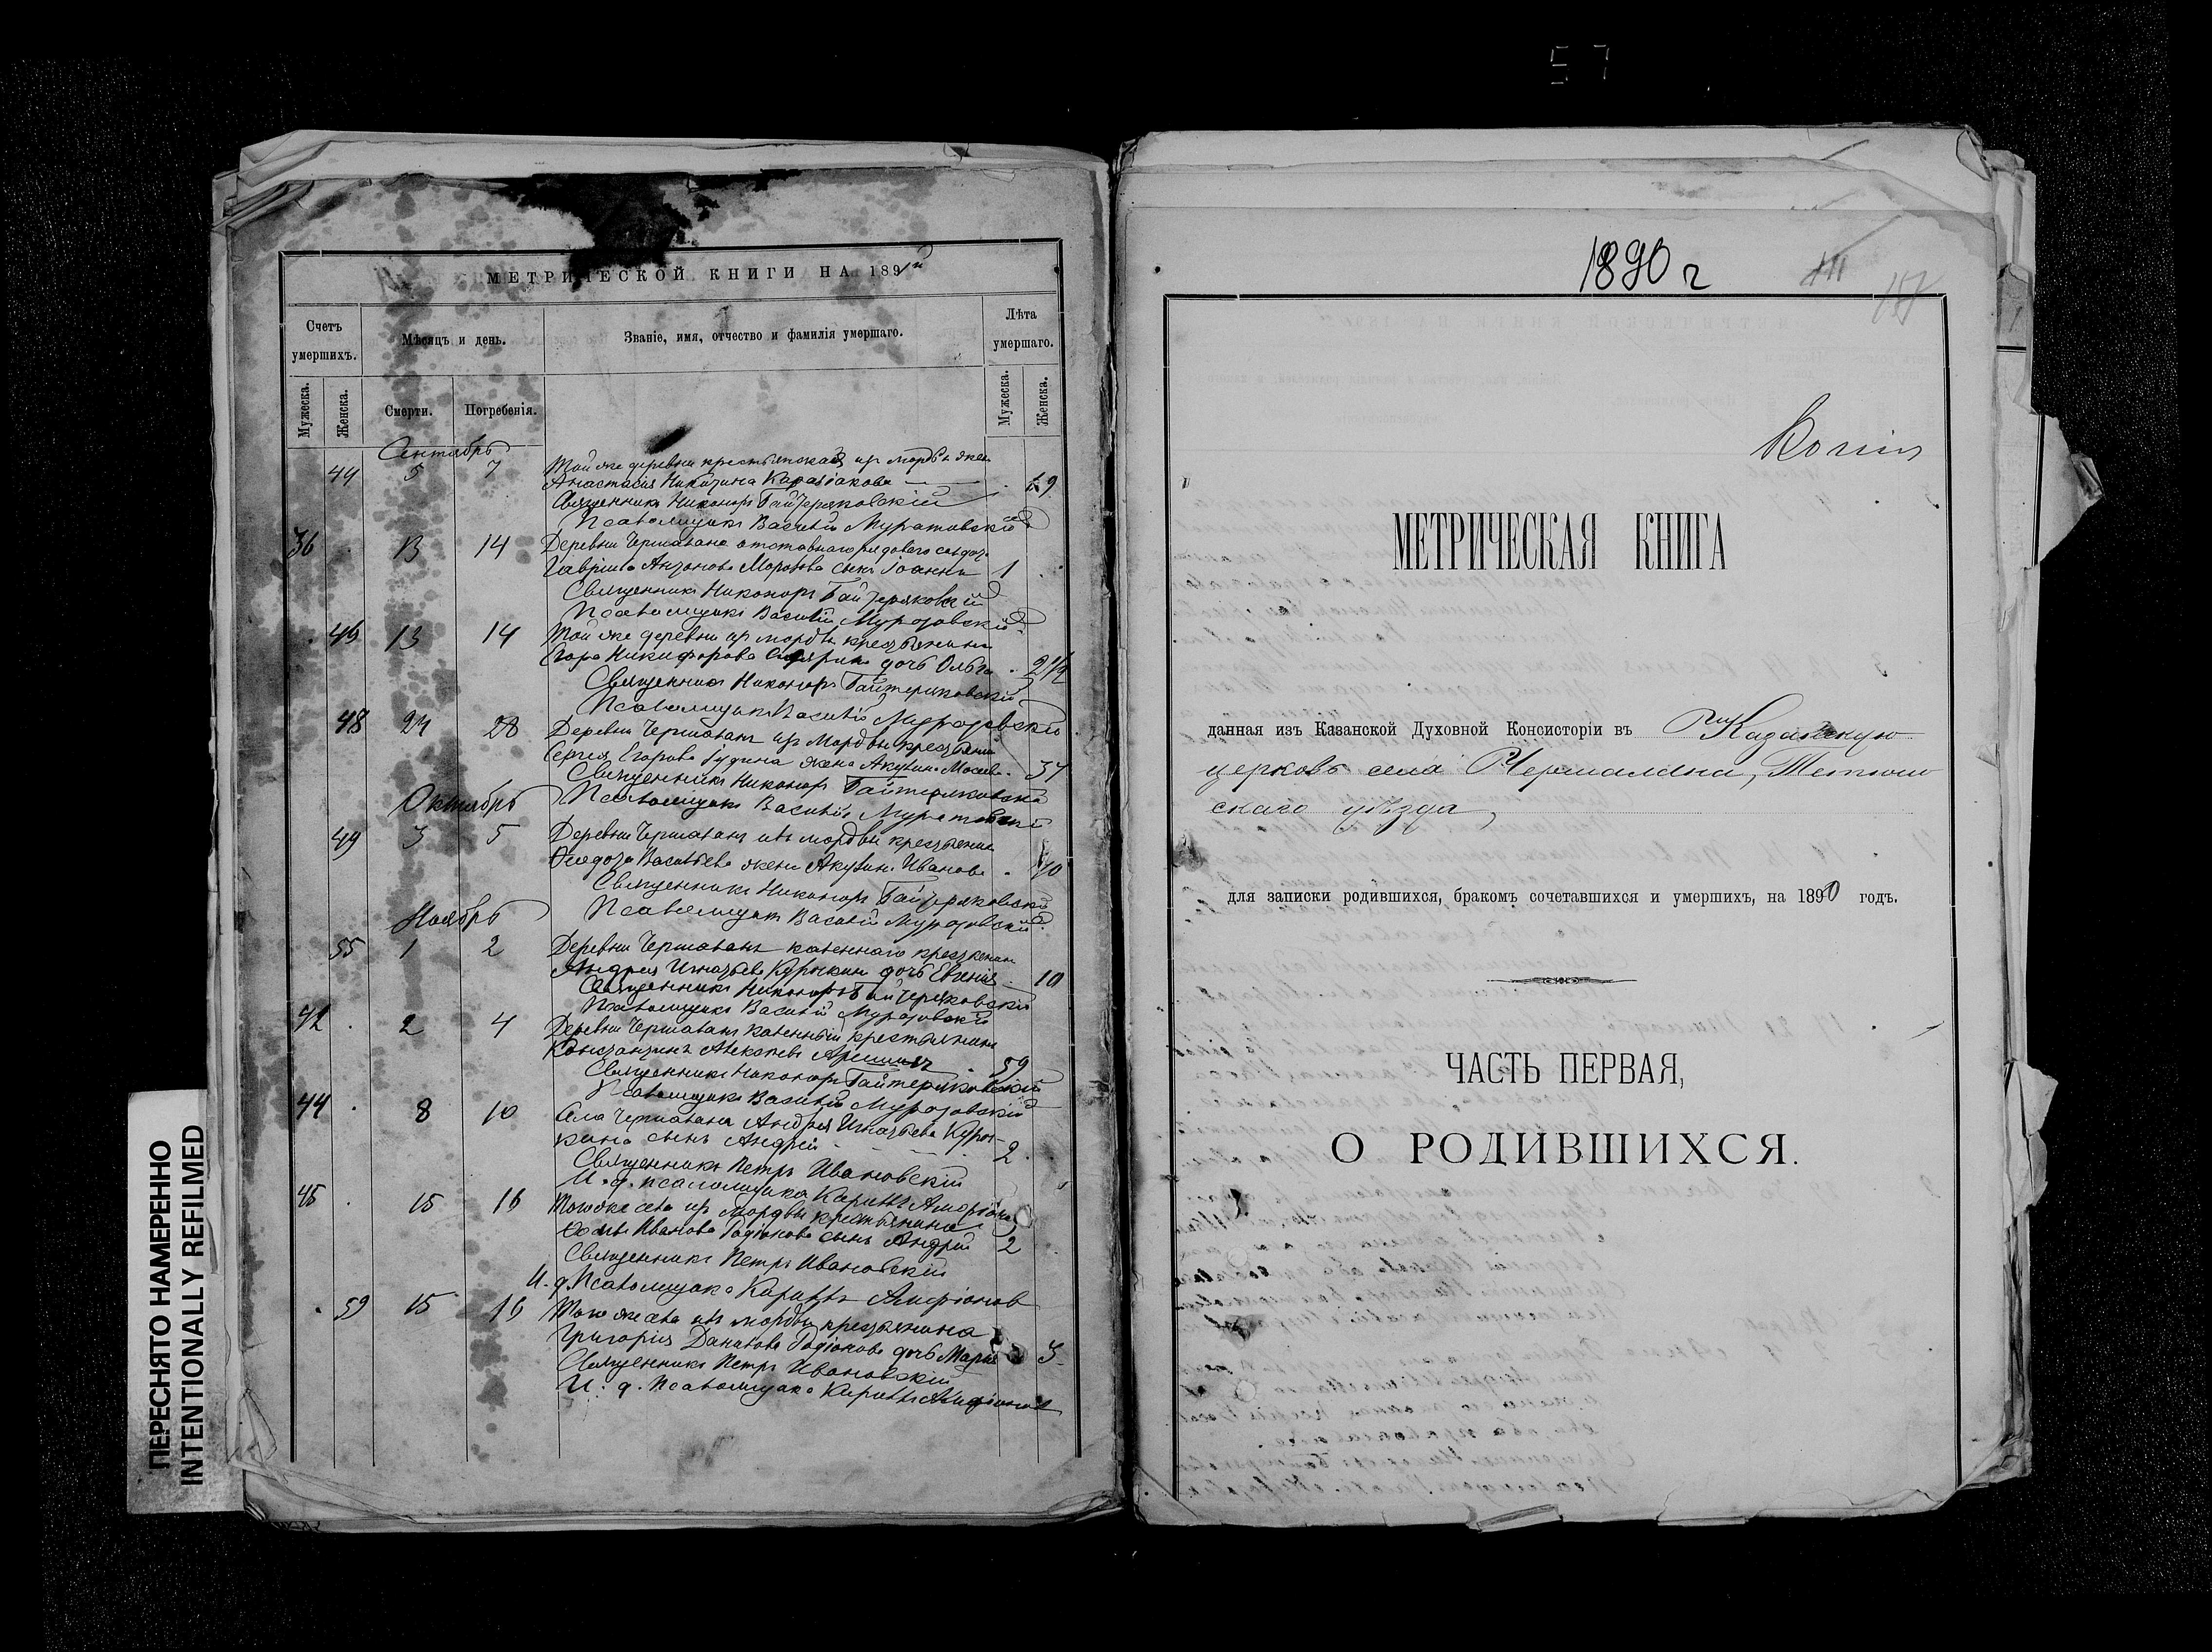 57
МЕТРИЧЕСКОЙ КНИГИ НА 1891й
Счетъ умершихъ.
Мѣсяцъ и день.
Званіе, имя, отчество и фамилія умершаго.
Лѣта умершаго.
Мужеска.
Женска.
Смерти.
Погребенія.
Мужеска.
Женска.
Сентябрь
44 5 7 Той же деревни крестьянская изъ мордвы жена
Анастасія Никитина 69
Священникъ Никоноръ Байтеряковскій
Псаломщикъ Василій Муратовскій
36 13 14 Деревни Чермалана отставного рядового солдата
Гавріила Антонова Морозова сынъ Іоаннъ 1
Священникъ Никоноръ Байтеряковскій
Псаломщикъ Василій Муратовскій
46 13 14 Той же деревни изъ мордвы крестьянина
Егора Никифорова дочь Ольга 2 1/2
Священникъ Никоноръ Байтеряковскій
Псаломщикъ Василій Муратовскій
48 27 28 Деревни Чермаланъ изъ мордвы крестьянина
Сергія Егорова жена Акулина 37
Священникъ Никоноръ Байтеряковскій
Октябрь Псаломщикъ Василій Муратовскій
49 3 5 Деревни Чермаланъ изъ мордвы крестьянина
Ѳедота Васильева жена Акулина Иванова 40
Священникъ Никоноръ Байтеряковскій
Ноябрь Псаломщикъ Василій Муратовскій
55 1 2 Деревни Чермаланъ казеннаго крестьянина
Андрея Игнатьева Курочкина дочь Евгенія 10
Священникъ Никоноръ Байтеряковскій
Псаломщикъ Василій Муратовскій
42 2 4 Деревни Чермаланъ казенный крестьянинъ
Константинъ Алексѣевъ 59
Священникъ Никоноръ Байтеряковскій
Псаломщикъ Василій Муратовскій
44 8 10 Села Чермалана Андрея Игнатьева Куроч-
кина сынъ Андрей 2
Священникъ Петръ Ивановскій
И. д. псаломщика Кириллъ Амфіоновъ
45 15 16 Того же села изъ мордвы крестьянина
Ѳомы Иванова Родіонова сынъ Андрей 2
Священникъ Петръ Ивановскій
И. д. Псаломщика Кириллъ Амфіоновъ
59 15 16 Того же села изъ мордвы крестьянина
Григорія Данилова Родіонова дочь Марія 3
Священникъ Петръ Ивановскій
И. д. Псаломщика Кириллъ Амфіоновъ
ПЕРЕСНЯТО НАМЕРЕННО
INTENTIONALLY REFILMED
1890 г
Копія
МЕТРИЧЕСКАЯ КНИГА
данная изъ Казанской Духовной Консисторіи въ Казанскую
церковь села Чермалана, Тетюш
скаго уѣзда
для записки родившихся, бракомъ сочетавшихся и умершихъ, на 1890 годъ.
ЧАСТЬ ПЕРВАЯ,
О РОДИВШИХСЯ.